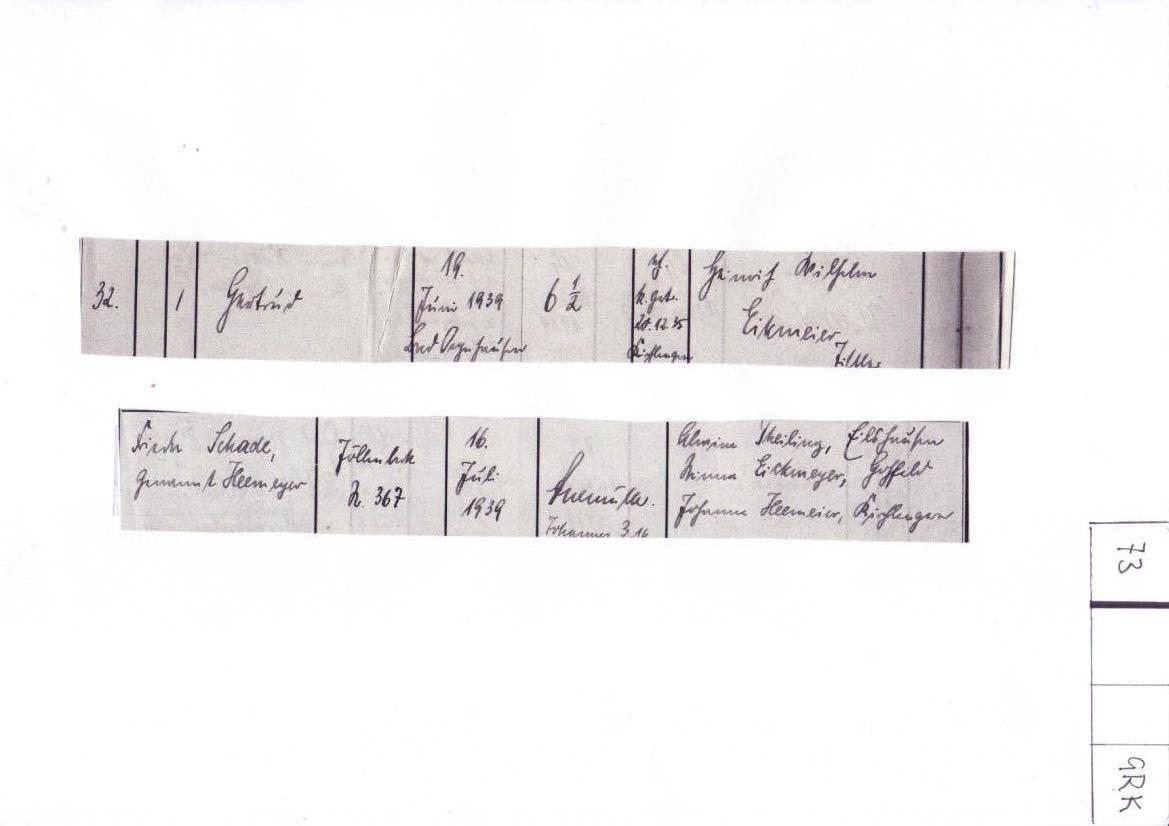 32.
1
Gertrud
19.
Juni 1939
Bad Oeynhausen
6 1/2
ehf.
k. get.
20.12.35
Kirchlengern
Heinrich Wilhelm
Eikmeier,
Tischler
Frieda Schade,
genannt Heemeyer
Jöllenbeck
N. 367
16.
Juli
1939
Johannes 3.16
Alwine Theiling, Eilshausen
Minna Eickmeyer, Gohfeld
Johanna Heemeier, Kirchlengern
73
GRK